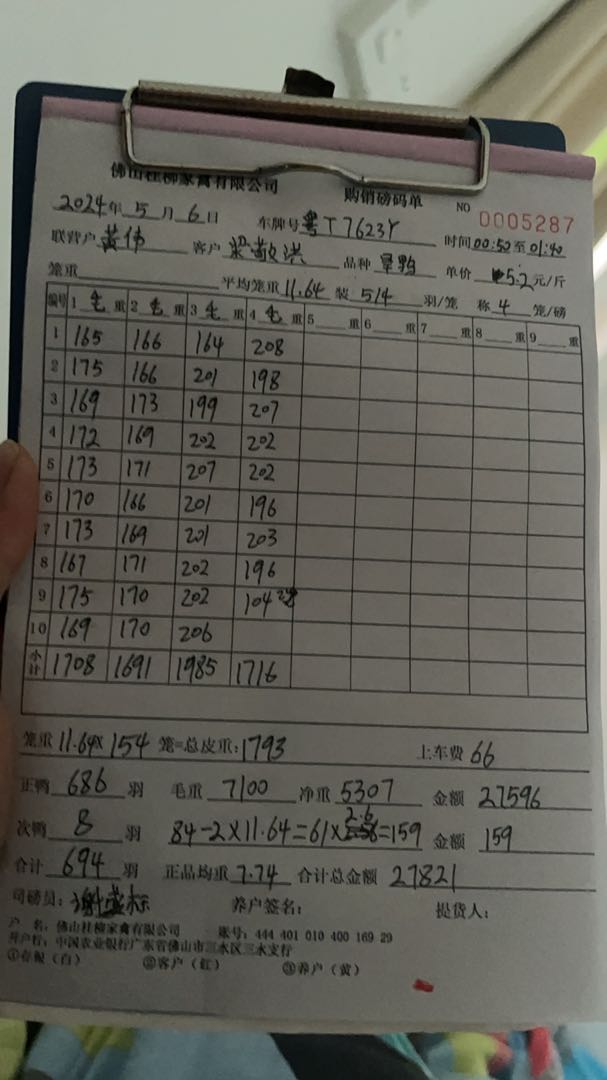 佛山桂柳家禽有限公司 购销磅码单 NO 0005287
2024年 5 月 6 日 车牌号 粤T7623Y 时间 00:50 至 01:40
联营户 黄伟 客户 梁敬洪 品种 单价 5.2 元/斤
笼重 平均笼重 11.64 装 5/4 羽/笼 称 4 笼/磅
编号 1 毛 重 2 毛 重 3 毛 重 4 毛 重 5 重 6 重 7 重 8 重 9 重
1 165 166 164 208
2 175 166 201 198
3 169 173 199 207
4 172 169 202 202
5 173 171 207 202
6 170 166 201 196
7 173 169 201 203
8 167 171 202 196
9 175 170 202 104
10 169 170 206
小计 1708 1691 1985 1716
笼重 11.64 x 154 笼=总皮重: 1793 上车费 66
正鸭 686 羽 毛重 7100 净重 5307 金额 27596
次鸭 8 羽 84-2×11.64=61×2.6=159 金额 159
合计 694 羽 正品均重 7.74 合计总金额 27821
司磅员: 养户签名: 提货人:
户 名: 佛山桂柳家禽有限公司 账号: 444 401 010 400 169 29
开户行: 中国农业银行广东省佛山市三水区三水支行
①存根（白） ②客户（红） ③养户（黄）